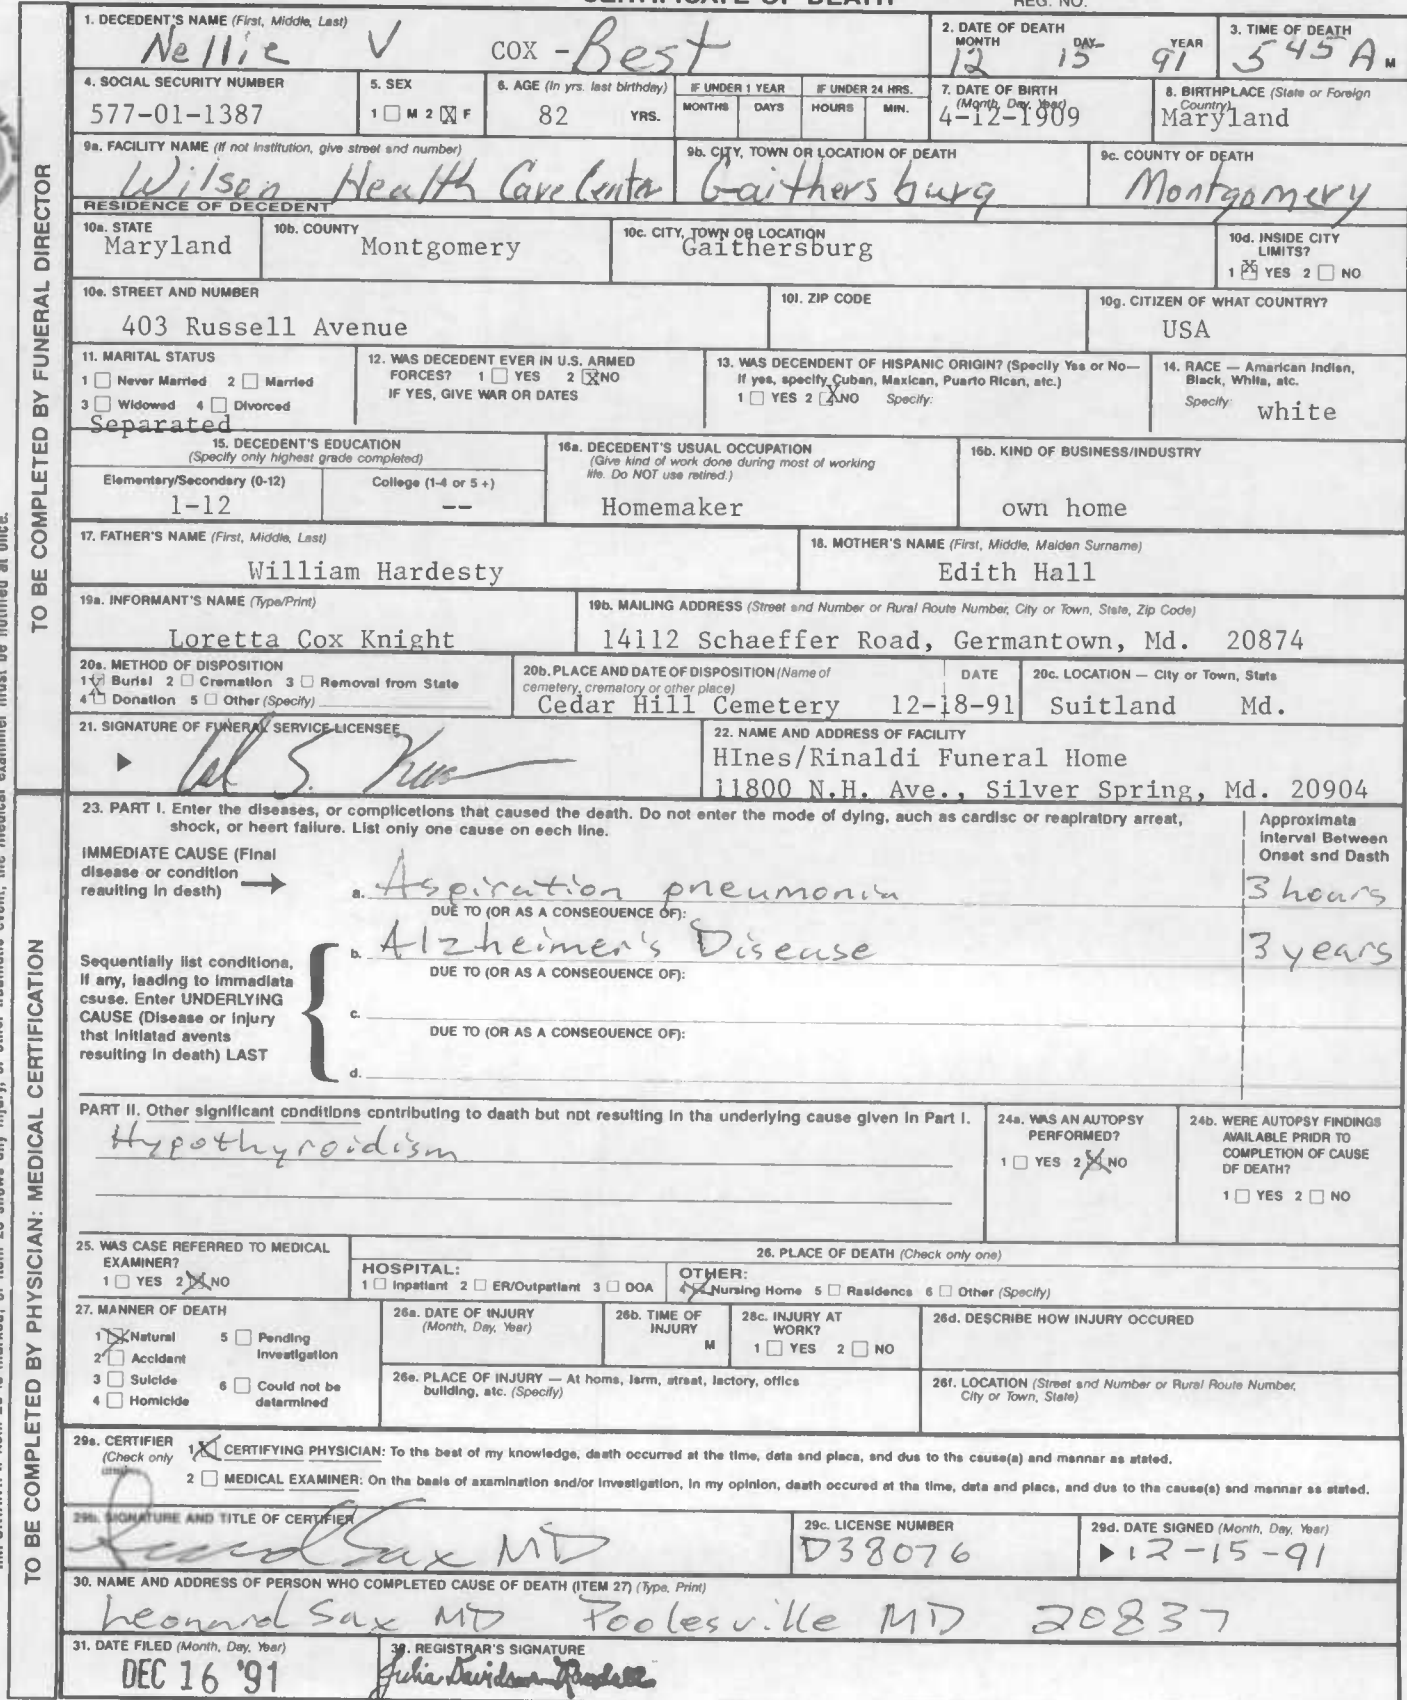 CERTIFICATE OF DEATH
REG. NO.
1. DECEDENT'S NAME (First, Middle, Last)
Nellie V COX - Best
2. DATE OF DEATH
MONTH DAY YEAR
12 15 91
3. TIME OF DEATH
5 45 A M
4. SOCIAL SECURITY NUMBER
577-01-1387
5. SEX
1 M 2 X F
6. AGE (In yrs. last birthday)
82 YRS.
IF UNDER 1 YEAR
MONTHS DAYS
IF UNDER 24 HRS.
HOURS MIN.
7. DATE OF BIRTH
(Month, Day, Year)
4-12-1909
8. BIRTHPLACE (State or Foreign
Country)
Maryland
9a. FACILITY NAME (If not institution, give street and number)
Wilson Health Care Center
9b. CITY, TOWN OR LOCATION OF DEATH
Gaithersburg
9c. COUNTY OF DEATH
Montgomery
RESIDENCE OF DECEDENT
10a. STATE
Maryland
10b. COUNTY
Montgomery
10c. CITY, TOWN OR LOCATION
Gaithersburg
10d. INSIDE CITY
LIMITS?
1 X YES 2 NO
10e. STREET AND NUMBER
403 Russell Avenue
10f. ZIP CODE
10g. CITIZEN OF WHAT COUNTRY?
USA
11. MARITAL STATUS
1 Never Married 2 Married
3 Widowed 4 Divorced
Separated
12. WAS DECEDENT EVER IN U.S. ARMED
FORCES? 1 YES 2 X NO
IF YES, GIVE WAR OR DATES
13. WAS DECENDENT OF HISPANIC ORIGIN? (Specify Yes or No—
If yes, specify Cuban, Mexican, Puerto Rican, etc.)
1 YES 2 X NO Specify:
14. RACE — American Indian,
Black, White, etc.
Specify: white
15. DECEDENT'S EDUCATION
(Specify only highest grade completed)
Elementary/Secondary (0-12)
1-12
College (1-4 or 5 +)
--
16a. DECEDENT'S USUAL OCCUPATION
(Give kind of work done during most of working
life. Do NOT use retired.)
Homemaker
16b. KIND OF BUSINESS/INDUSTRY
own home
17. FATHER'S NAME (First, Middle, Last)
William Hardesty
18. MOTHER'S NAME (First, Middle, Maiden Surname)
Edith Hall
19a. INFORMANT'S NAME (Type/Print)
Loretta Cox Knight
19b. MAILING ADDRESS (Street and Number or Rural Route Number, City or Town, State, Zip Code)
14112 Schaeffer Road, Germantown, Md. 20874
20a. METHOD OF DISPOSITION
1 X Burial 2 Cremation 3 Removal from State
4 Donation 5 Other (Specify)
20b. PLACE AND DATE OF DISPOSITION (Name of
cemetery, crematory or other place)
DATE
Cedar Hill Cemetery 12-18-91
20c. LOCATION — City or Town, State
Suitland Md.
21. SIGNATURE OF FUNERAL SERVICE LICENSEE
22. NAME AND ADDRESS OF FACILITY
HInes/Rinaldi Funeral Home
11800 N.H. Ave., Silver Spring, Md. 20904
23. PART I. Enter the diseases, or complications that caused the death. Do not enter the mode of dying, such as cardiac or respiratory arrest,
shock, or heart failure. List only one cause on each line.
Approximate
Interval Between
Onset and Death
IMMEDIATE CAUSE (Final
disease or condition
resulting in death)
a. Aspiration pneumonia 3 hours
DUE TO (OR AS A CONSEQUENCE OF):
b. Alzheimer's Disease 3 years
DUE TO (OR AS A CONSEQUENCE OF):
Sequentially list conditions,
if any, leading to immediate
cause. Enter UNDERLYING
CAUSE (Disease or injury
that initiated events
resulting in death) LAST
c.
DUE TO (OR AS A CONSEQUENCE OF):
d.
PART II. Other significant conditions contributing to death but not resulting in the underlying cause given in Part I.
Hypothyroidism
24a. WAS AN AUTOPSY
PERFORMED?
1 YES 2 X NO
24b. WERE AUTOPSY FINDINGS
AVAILABLE PRIOR TO
COMPLETION OF CAUSE
OF DEATH?
1 YES 2 NO
25. WAS CASE REFERRED TO MEDICAL
EXAMINER?
1 YES 2 X NO
26. PLACE OF DEATH (Check only one)
HOSPITAL:
1 Inpatient 2 ER/Outpatient 3 DOA
OTHER:
4 X Nursing Home 5 Residence 6 Other (Specify)
27. MANNER OF DEATH
1 X Natural 5 Pending
Investigation
2 Accident
3 Suicide 6 Could not be
determined
4 Homicide
28a. DATE OF INJURY
(Month, Day, Year)
28b. TIME OF
INJURY
M
28c. INJURY AT
WORK?
1 YES 2 NO
28d. DESCRIBE HOW INJURY OCCURED
28e. PLACE OF INJURY — At home, farm, street, factory, office
building, etc. (Specify)
28f. LOCATION (Street and Number or Rural Route Number,
City or Town, State)
29a. CERTIFIER
(Check only
1 X CERTIFYING PHYSICIAN: To the best of my knowledge, death occurred at the time, date and place, and due to the cause(s) and manner as stated.
2 MEDICAL EXAMINER: On the basis of examination and/or investigation, in my opinion, death occured at the time, date and place, and due to the cause(s) and manner as stated.
29b. SIGNATURE AND TITLE OF CERTIFIER
Sax MD
29c. LICENSE NUMBER
D38076
29d. DATE SIGNED (Month, Day, Year)
12-15-91
30. NAME AND ADDRESS OF PERSON WHO COMPLETED CAUSE OF DEATH (ITEM 27) (Type, Print)
Leonard Sax MD Poolesville MD 20837
31. DATE FILED (Month, Day, Year)
DEC 16 '91
32. REGISTRAR'S SIGNATURE
Julia Davidson-Randall
TO BE COMPLETED BY FUNERAL DIRECTOR
TO BE COMPLETED BY PHYSICIAN: MEDICAL CERTIFICATION